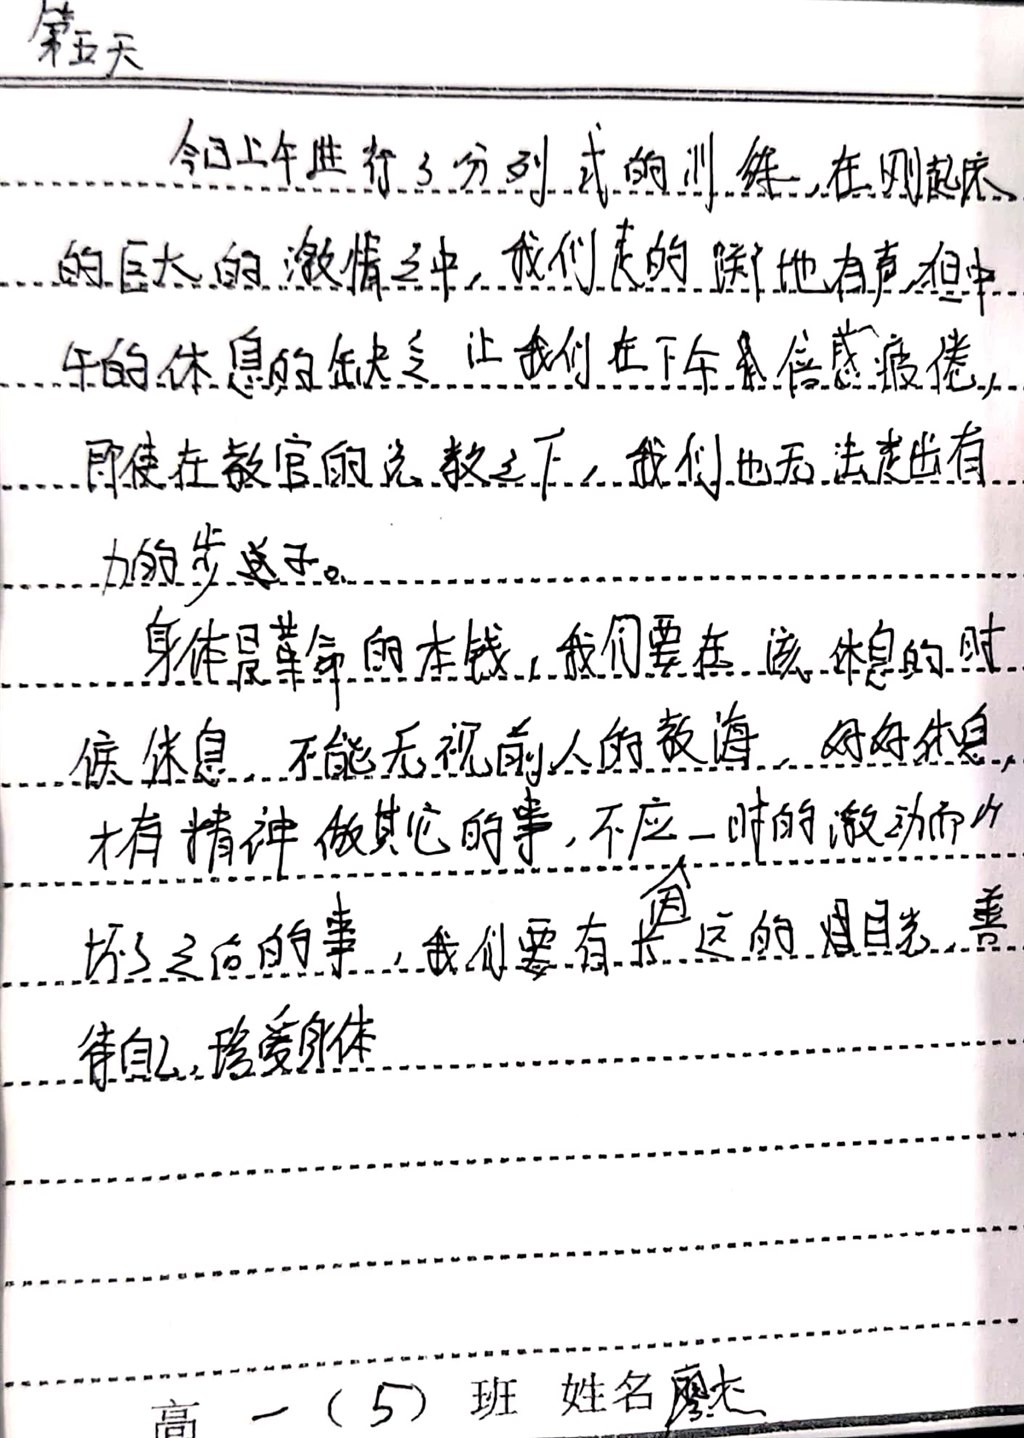 第五天
今日上午进行了分列式的训练,在刚起床
的巨大的激情之中,我们走的踩地有声,但中
午的休息的缺乏让我们在下午倍感疲倦,
即使在教官的说教之下,我们也无法走出有
力的步子。
身体是革命的本钱,我们要在该休息的时
候休息,不能无视前人的教海,好好休息,
才有精神做其它的事,不应一时的激动而
坏了之后的事,我们要有长远的目光,善
待自己,珍爱身体
高一(5)班 姓名廖